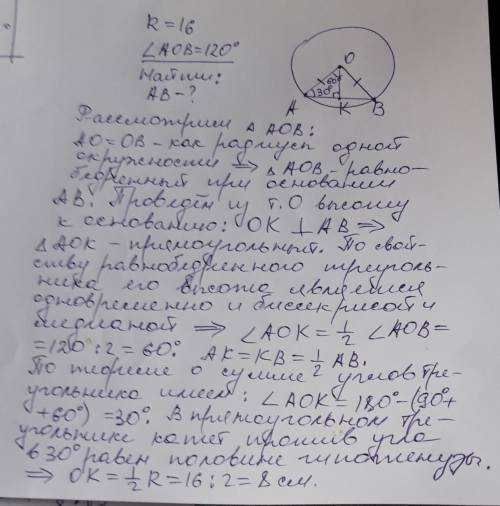 R = 16
∠AOB=120°
Найти:
AB - ?
O
60°
30°
A
K
B
Рассмотрим △ AOB:
AO = OB - как радиусы одной
окружности ⟹ △ AOB - равно-
бедренный при основании
AB. Проведём из т. O высоту
к основанию: OK ⊥ AB ⟹
△ AOK - прямоугольный. По свой-
ству равнобедренного треуголь-
ника его высота является
одновременно и биссектрисой и
медианой ⟹ ∠AOK = 1/2 ∠AOB =
= 120° : 2 = 60°. AK = KB = 1/2 AB.
По теореме о сумме углов тре-
угольника имеем: ∠AOK = 180° - (90° +
+ 60°) = 30°. В прямоугольном тре-
угольнике катет против угла
в 30° равен половине гипотенузы.
⟹ OK = 1/2 R = 16 : 2 = 8 см.